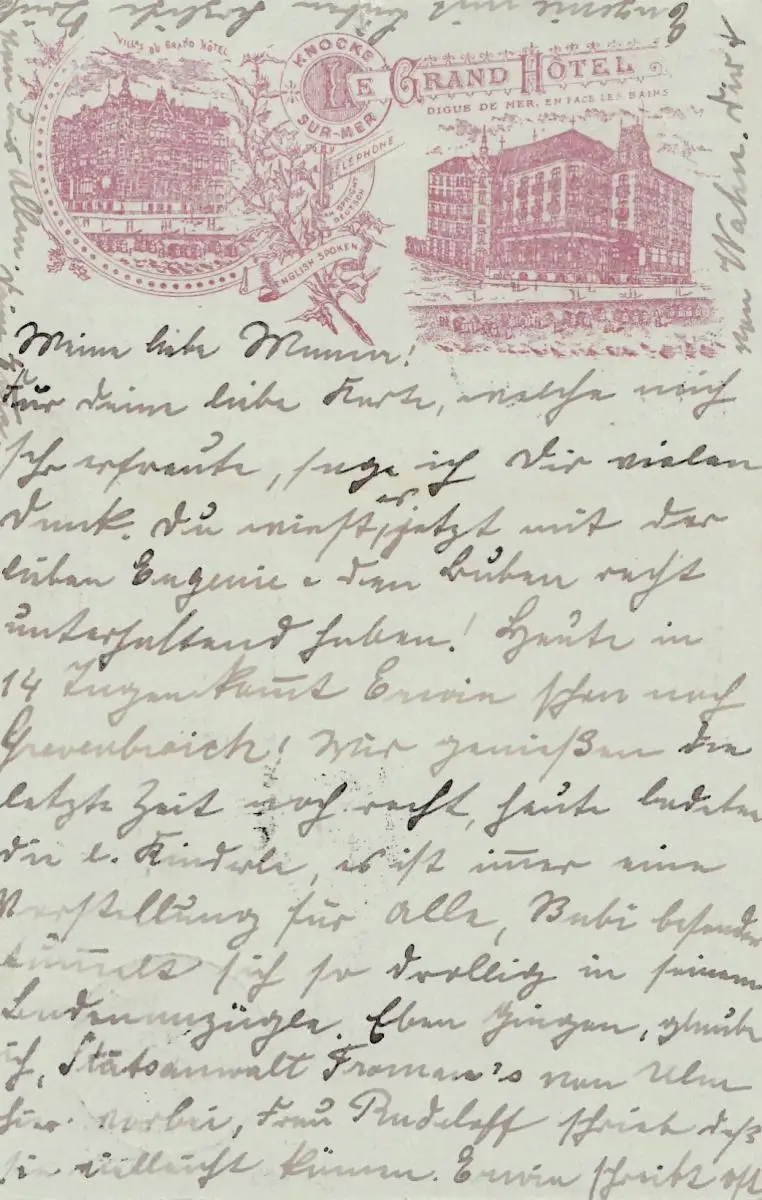 VILLAS DU GRAND HÔTEL
KNOCKE
SUR-MER
LE GRAND HÔTEL
DIGUE DE MER, EN FACE LES BAINS
TELEPHONE
MAN SPRICHT DEUTSCH
ENGLISH SPOKEN
Meine liebe Mama!
Für deine liebe Karte, welche mich
sehr erfreute, sage ich Dir vielen
Dank. Du wirst es jetzt mit der
lieben Eugenie u den Buben recht
unterhaltend haben! Heute in
14 Tagen kommt Erwin schon nach
Grevenbroich! Wir genießen die
letzte Zeit noch recht, heute badeten
die l. Kinderle, es ist immer eine
Vorstellung für alle, Bubi besonders
tummelt sich so drollig in seinem
Badeanzügle. Eben gingen, glaube
ich, Statsanwalt Froman's von Ulm
hier vorbei, Frau Rudeloff schrieb daß
sie vielleicht kämen. Erwin schreibt oft